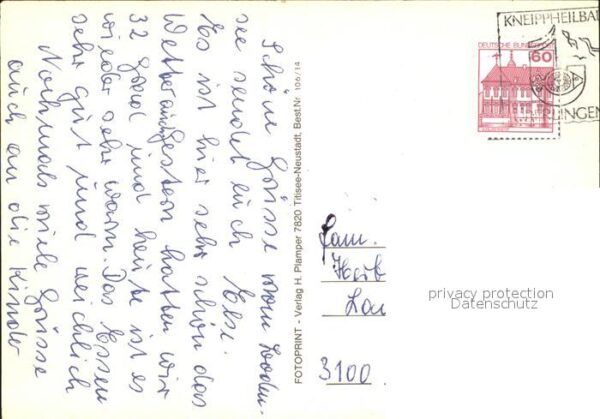 Schöne Grüsse vom Boden-
see sendet euch Else.
Es ist hier sehr schön das
Wetter
gestern hatten wir
32 Grad und heute ist es
wieder sehr warm. Das Essen
sehr gut und reichlich
Nochmals viele Grüsse
auch an die Kinder
FOTOPRINT - Verlag H. Plamper 7820 Titisee-Neustadt, Best.Nr. 106/14
KNEIPPHEILBAD
DEUTSCHE BUNDESPOST
60
LINGEN
Fam.
3100
privacy protection
Datenschutz